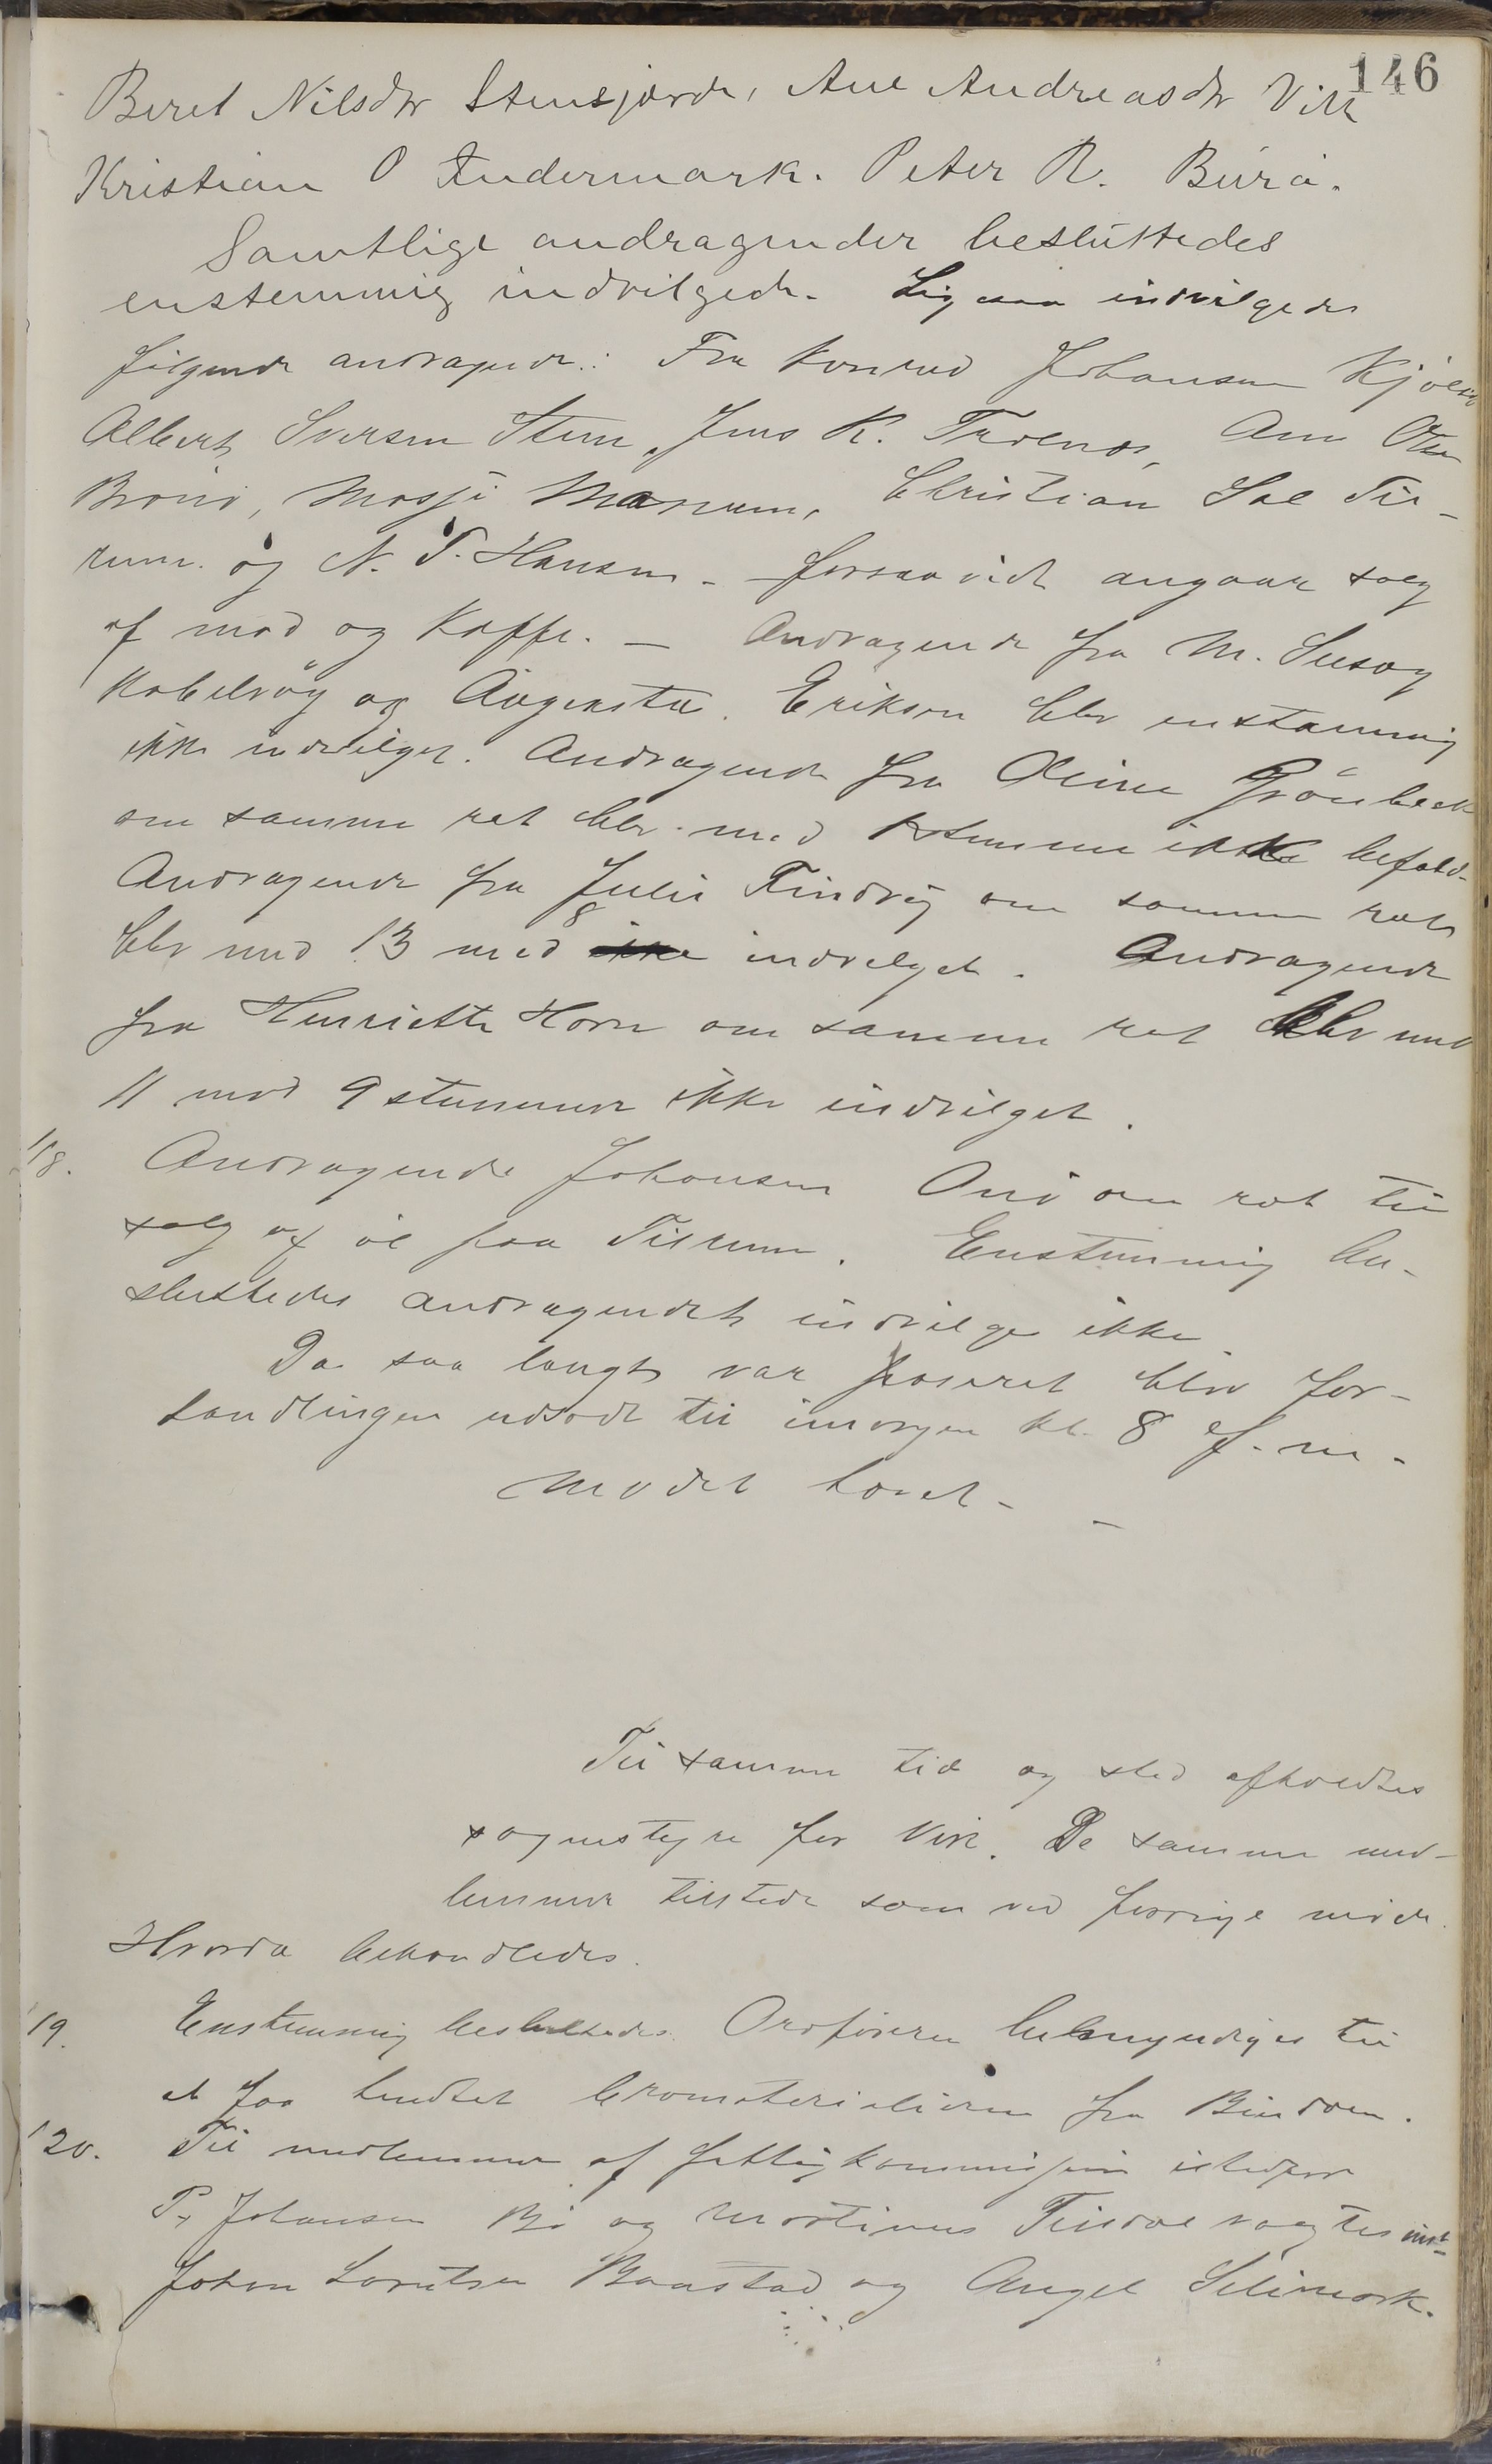 146
Beret Nilsdtr Stensjorde, Ane Andreasdtr Vik
Kristian O Indermark. Peter R. Burø.
Samtlige andragender besluttedes
enstemmig indvilgede. Ligesaa indvilgedes
følgende andragender: Fra Konrad Johansen Kjølen
Albert Sversen Steen, Jens K. Trælnes, Ane Olsen
Brønø, Mosji Marum, Christian Sæl Til-
rum. og N. P. Hansen - forsaavidt angaar salg
af mad og Kaffe. — Andragende fra M. Susøg
Kobelvåg og Augusta Eriksen blev enstemmig
ikke indvilget. Andragende fra Oline Grønbeck
om samme ret blev med stemme ikke befald-
Andragende fra Julie Tindvig om samme ret
blev med 13 mod 8 indvilget. Andragende
fra Henriette Horn om samme ret blev med
11 mod 9 stemmer ikke indvilget.
118. Andragende Johansen Onø om ret til
salg af øl paa Tilrum. Enstemmig be-
sluttedes andragendet indvilges ikke.
Da saa langt var passeret blev for-
handlingen udsadt til imorgen kl. 8 f. m.
Mødet hævet.
Til samme tid og sted afholdtes
sognestyre for Vik. De samme med-
lemmer tilstede som ved forrige møde.
Hvorda behandledes.
119. Enstemmig besluttedes Ordføreren bemyndiges til
at faa hendtet bromaterialierne fra Bindalen.
120. Til medlemmer af fattigkommissjonen istedfor
P. Johansen Bø og Martinus Tilrem valgtes
Johan Lorntsen Baastad og Angel Selimark.